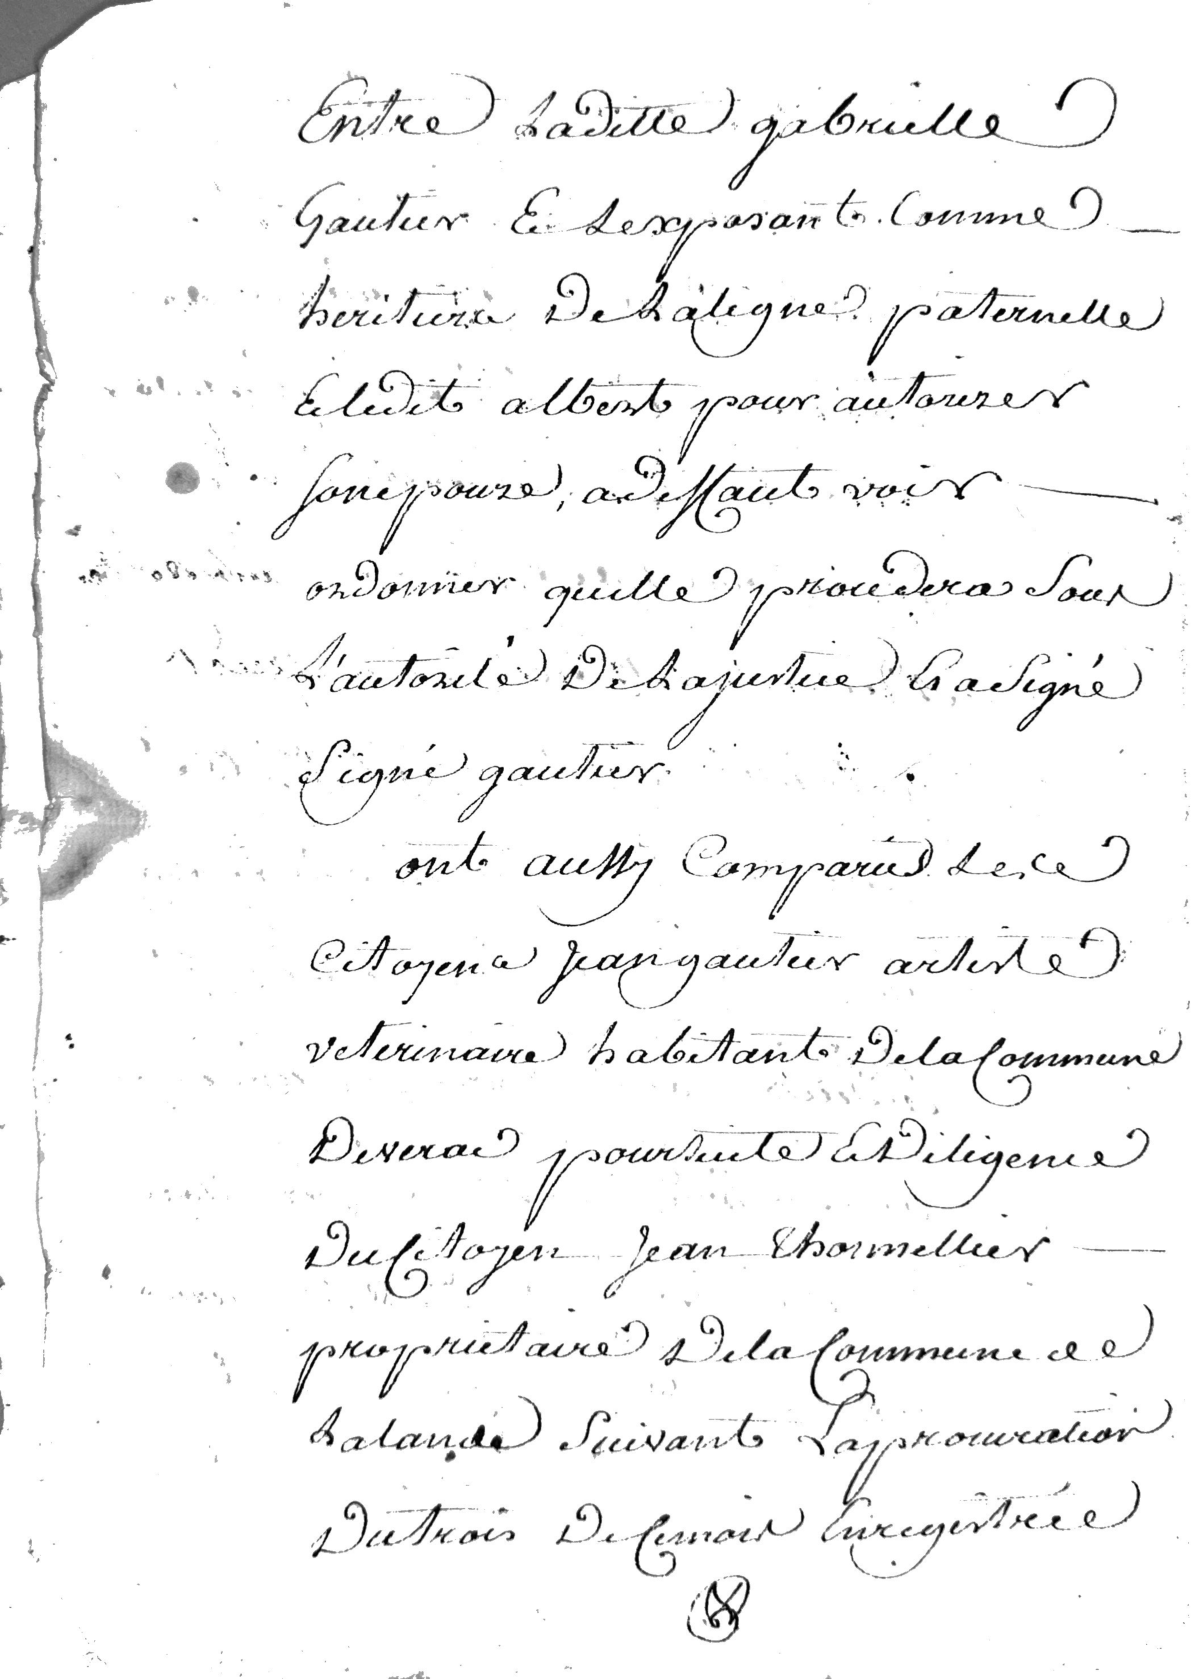 Entre Laditte gabrielle
Gautier Et Lexposant Comme
heritiere De La ligne paternelle
Et ledit albert pour autorizer
son epouze, a deffaut voir
ordonner quelle procedera Sous
L'autorité De La justice Et a Signé
Signé gautier
ont aussy Comparus Le
Citoyen Jean gautier artiste
veterinaire habitant De la Commune
De verac poursuite Et Diligence
Du Citoyen Jean Thormellier
proprietaire De la Commune de
Lalande Suivant La procuration
Du trois De Ce mois Enregistrée